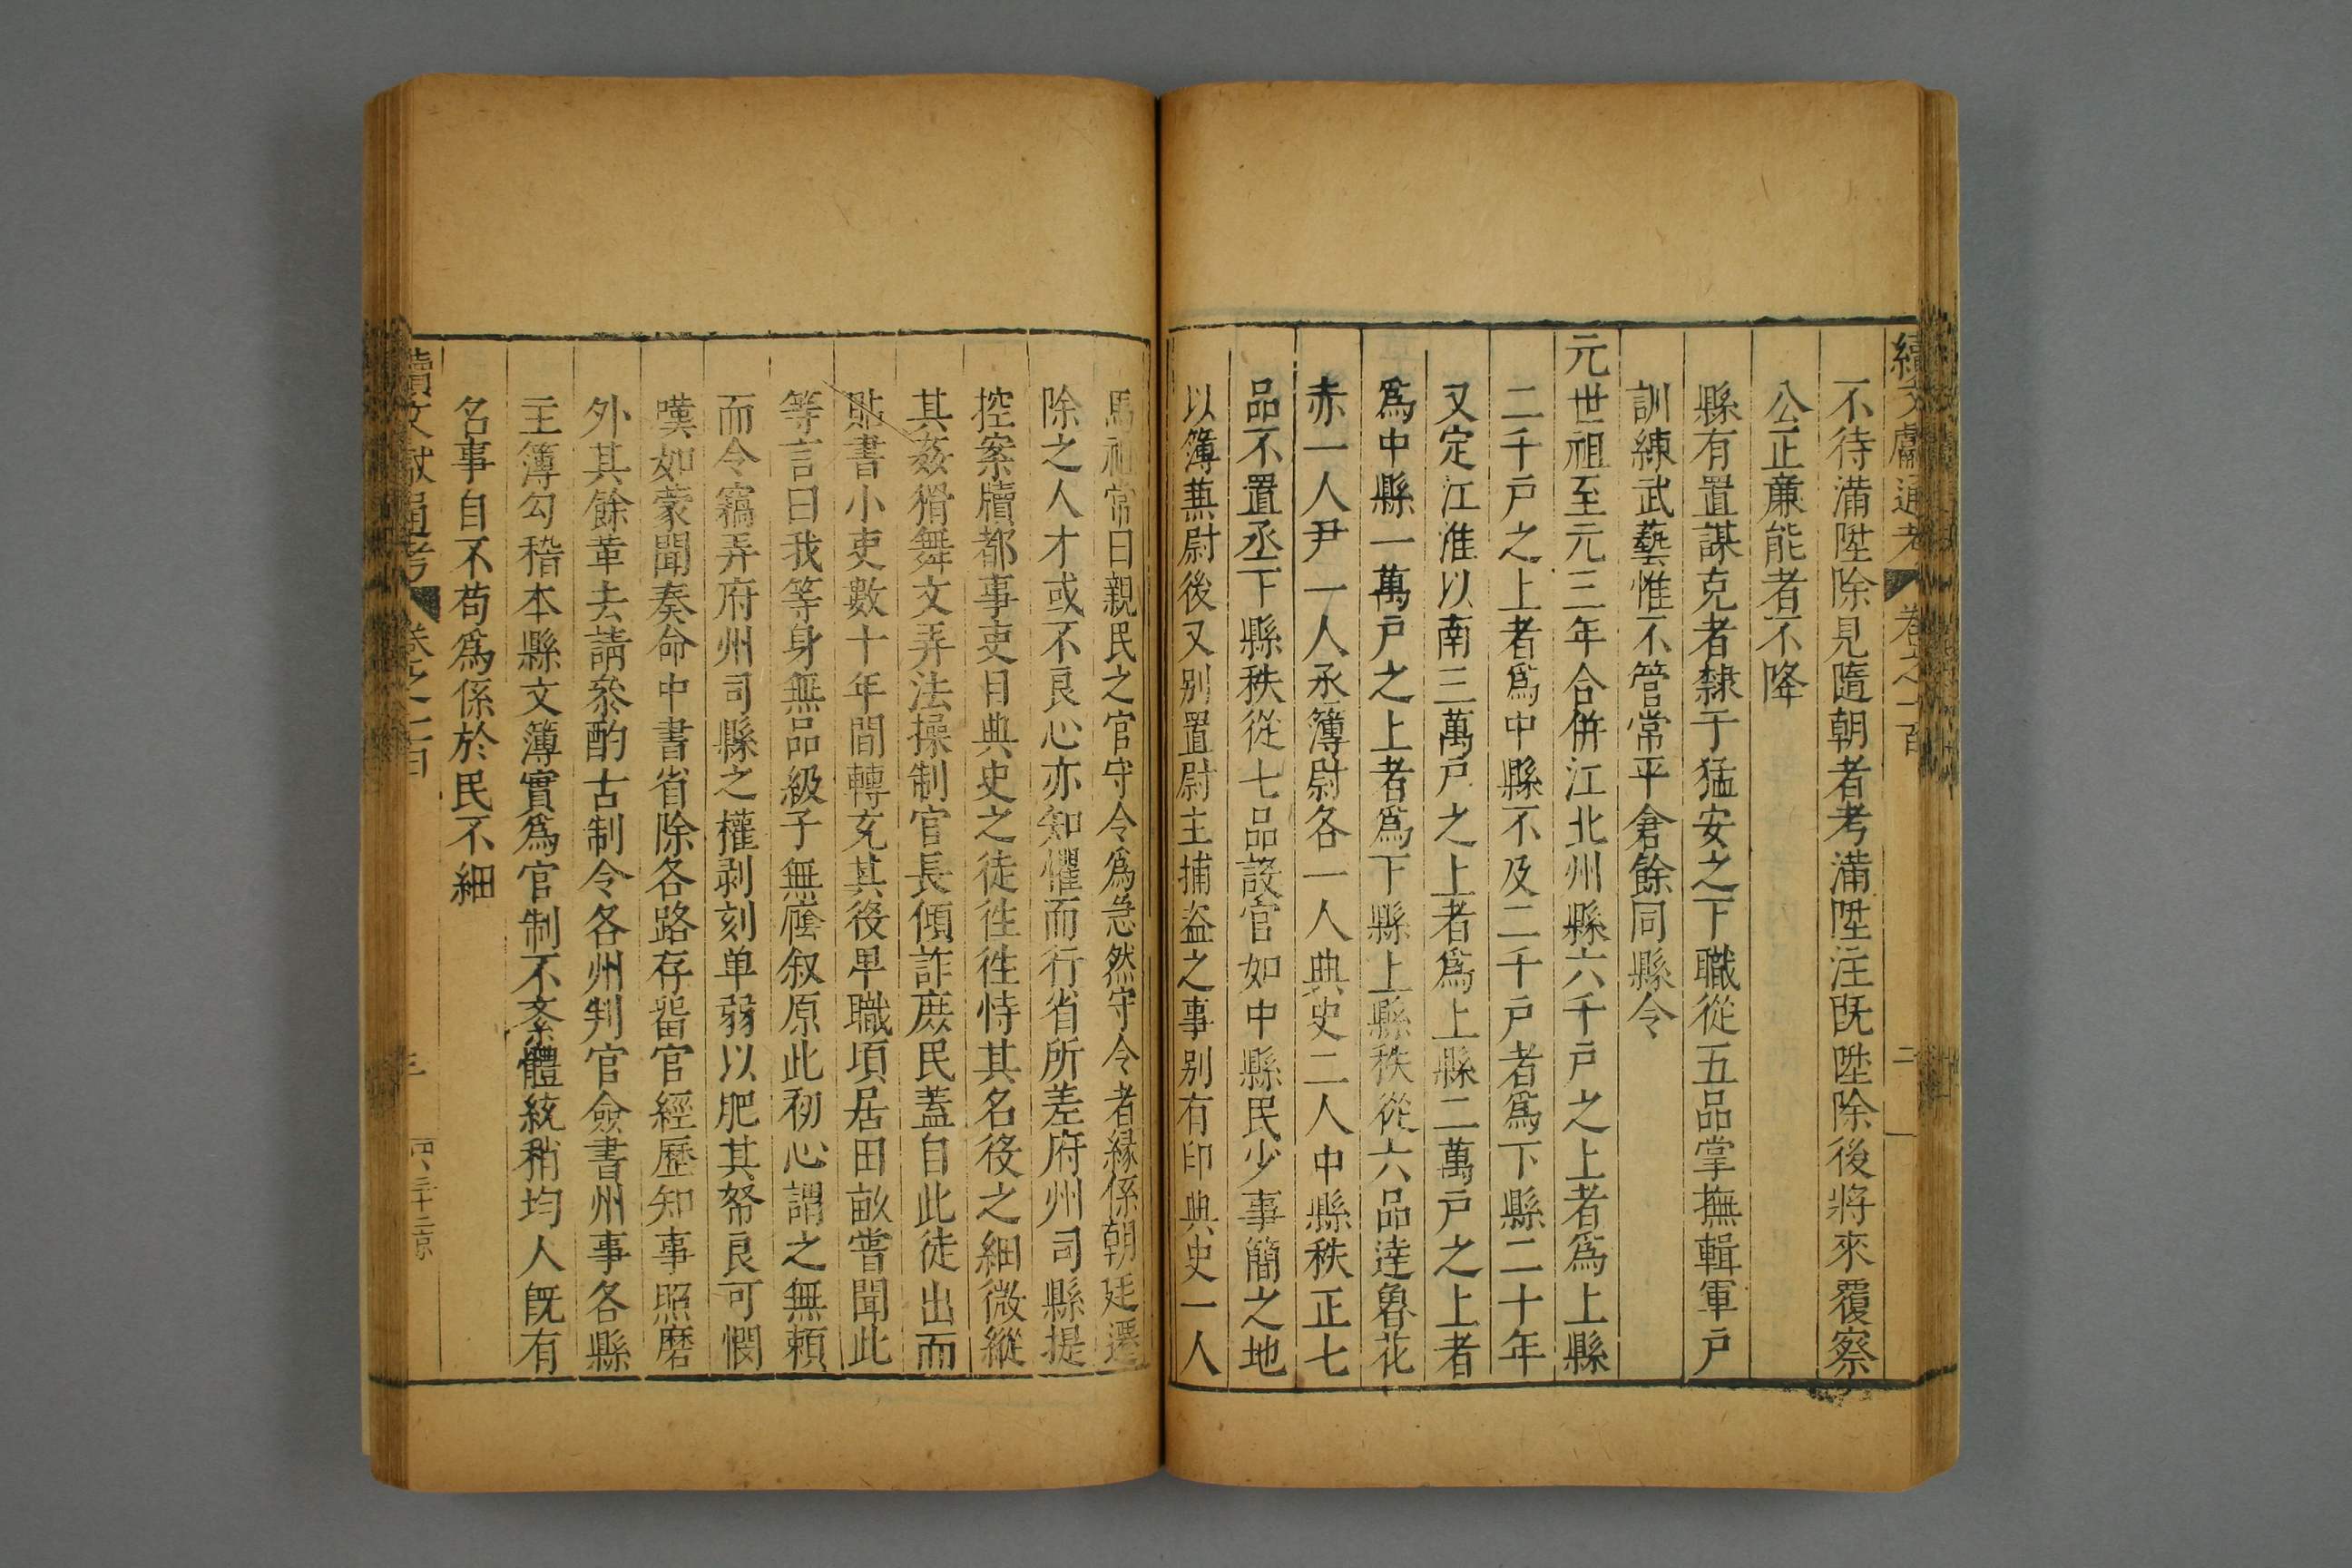 續文獻通考 卷之一百 二
不待滿陞除見隨朝者考滿陞注既陞除後將來覆察
公正廉能者不降
縣有置謀克者隸于猛安之下職從五品掌撫輯軍戶
訓練武藝惟不管常平倉餘同縣令
元世祖至元三年合併江北州縣六千戶之上者爲上縣
二千戶之上者爲中縣不及二千戶者爲下縣二十年
又定江淮以南三萬戶之上者爲上縣二萬戶之上者
爲中縣一萬戶之上者爲下縣上縣秩從六品達魯花
赤一人尹一人丞簿尉各一人典史二人中縣秩正七
品不置丞下縣秩從七品設官如中縣民少事簡之地
以簿兼尉後又別置尉主捕盜之事別有印典史一人
馬祖常曰親民之官守令爲急然守令者緣係朝廷遷
除之人才或不良心亦知懼而行省所差府州司縣提
控案牘都事吏目典史之徒徃徃恃其名役之細微縱
其姦猾舞文弄法操制官長傾詐庶民蓋自此徒出而
貼書小吏數十年間轉充其役早職頃居田畝嘗聞此
等言曰我等身無品級子無廕叙原此初心謂之無賴
而令竊弄府州司縣之權剥刻单弱以肥其帑良可憫
嘆如蒙聞奏命中書省除各路存畱官經歷知事照磨
外其餘革去請叅酌古制令各州判官僉書州事各縣
主簿勾稽本縣文簿實爲官制不紊體統稍均人旣有
名事自不苟爲係於民不細
續文獻通考 卷之一百 三